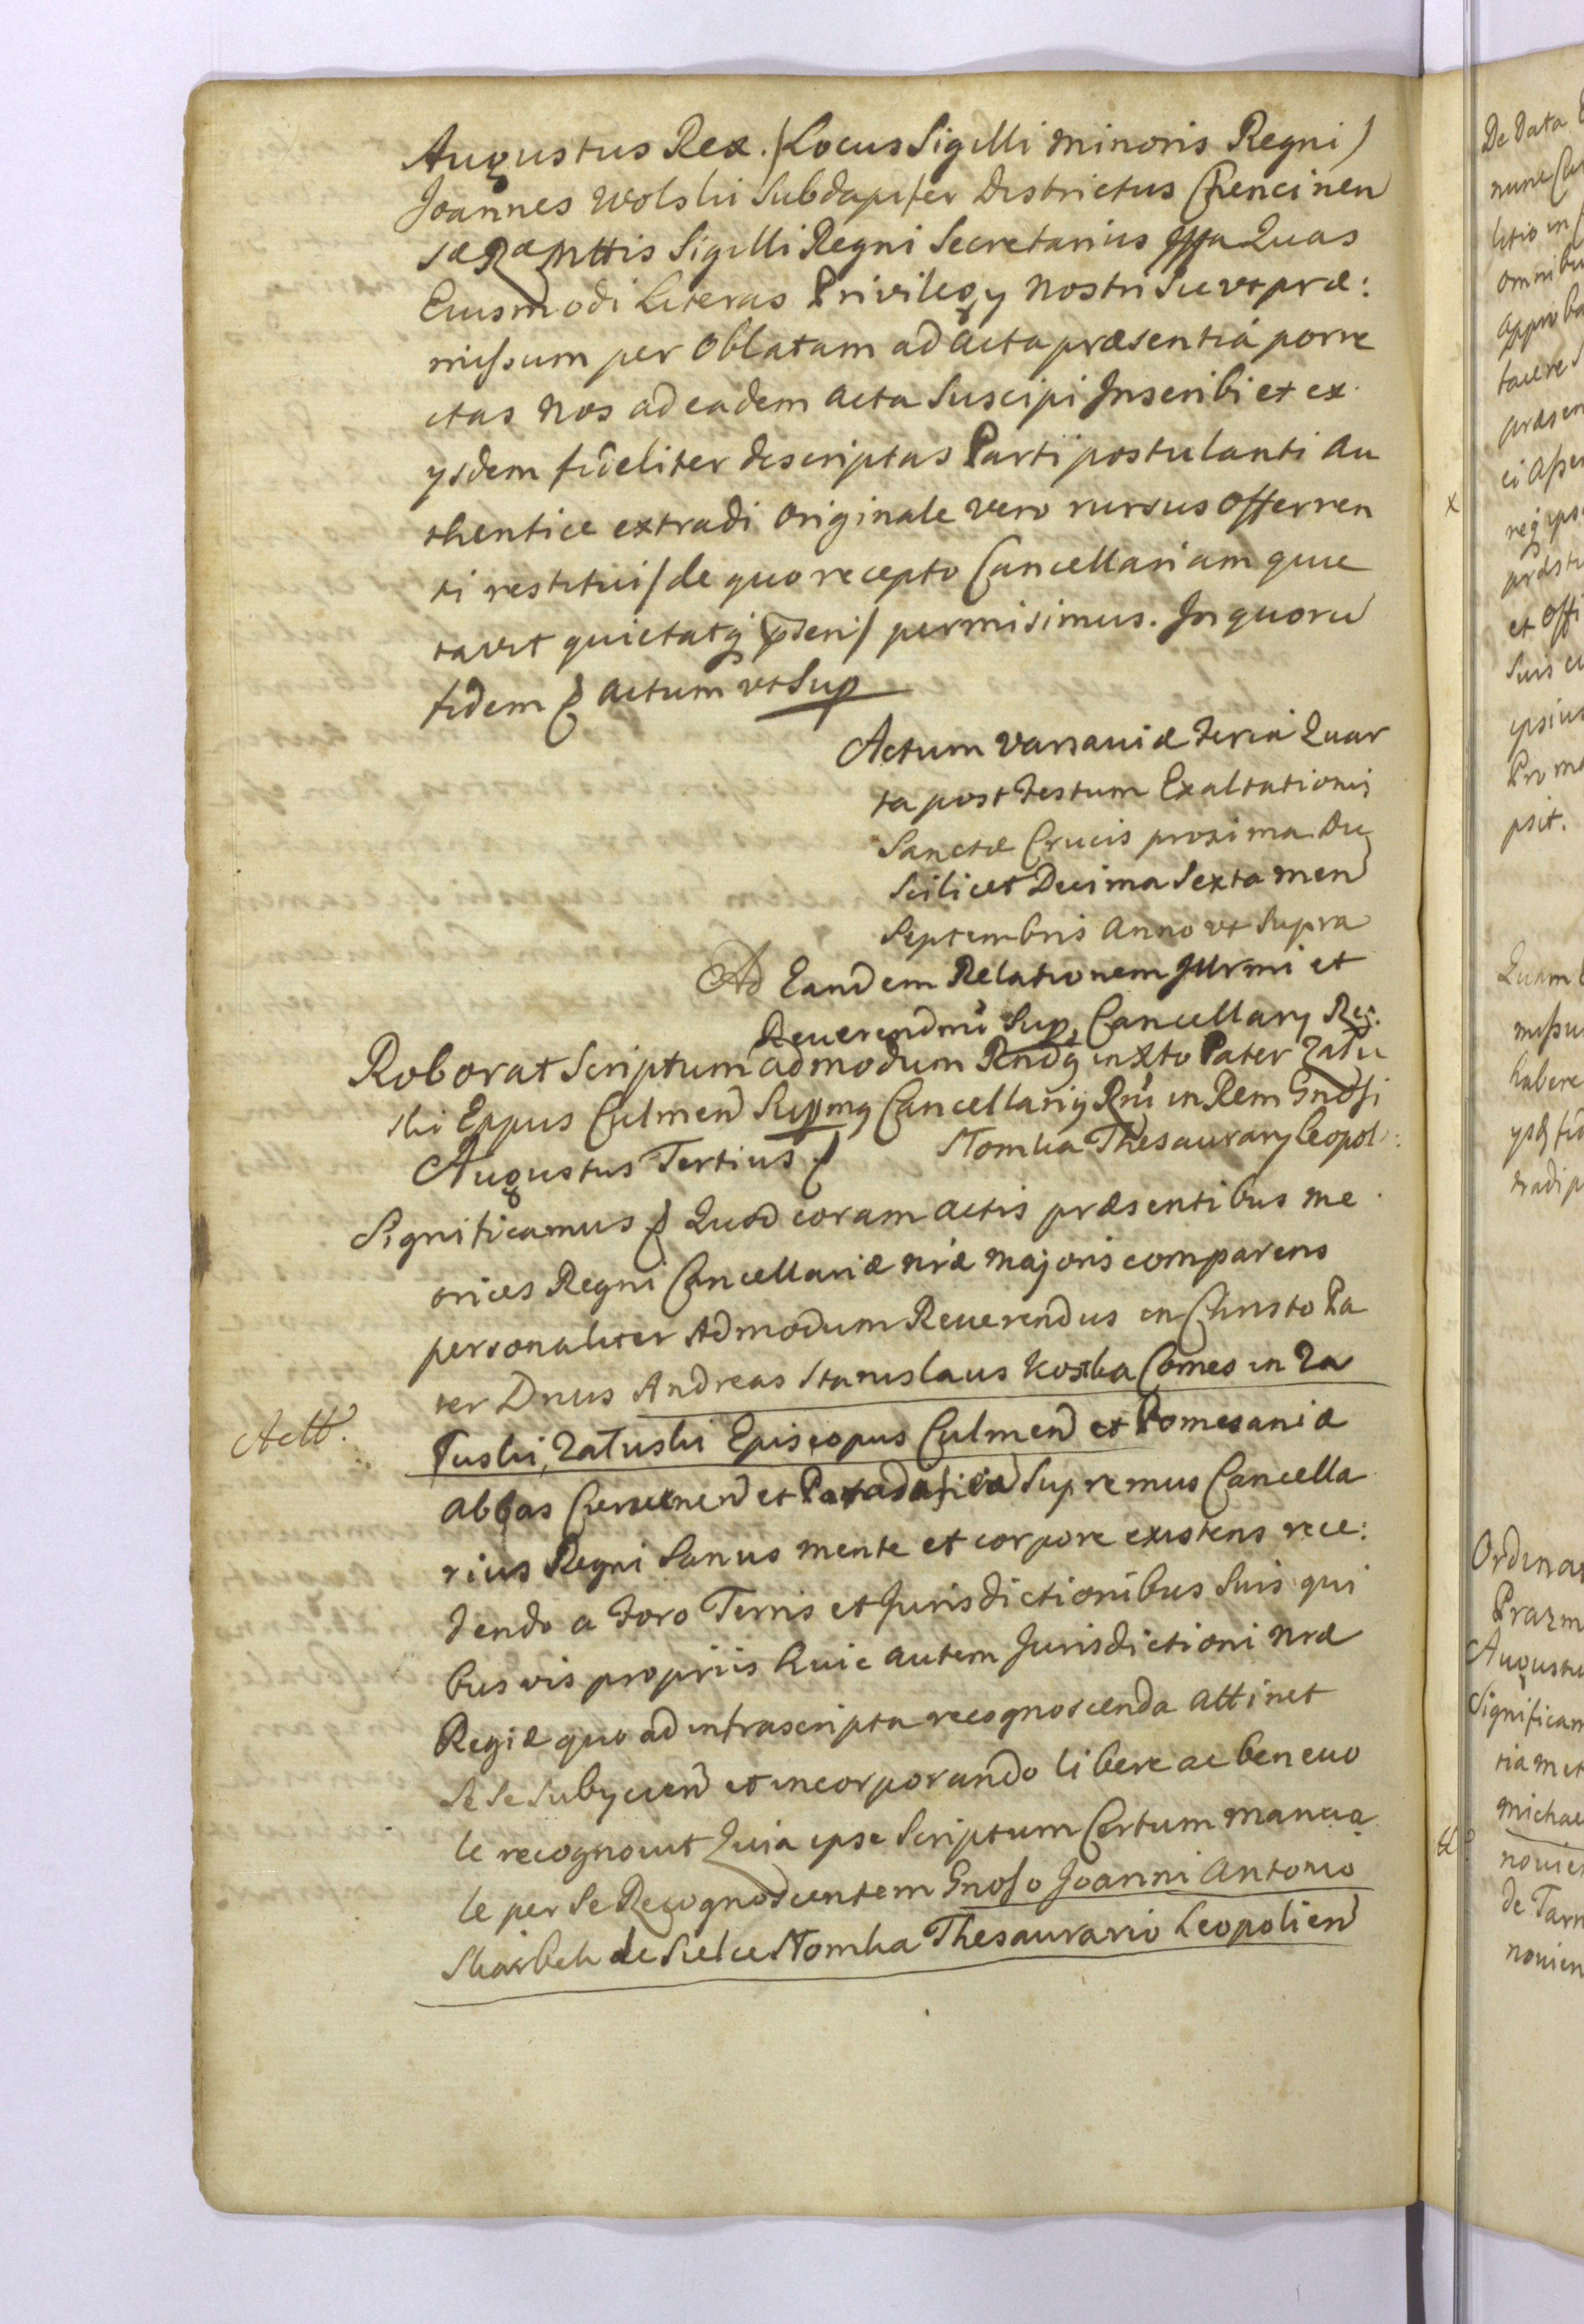 Augustus Rex. /Locus Sigilli minoris Regni/
Joannes Wolski Subdapifer Districtus Chencinen
sæ Ræ Mttis Sigilli Regni Secretarius Quas
Eiusmodi Literas Privilegy Nostri Sic vt præ:
missum per Oblatam ad acta præsentia porre
ctas Nos ad eadem acta Suscipi Inscribi et ex
ysdem fideliter descriptas Parti postulanti au
thentice extradi Originale vero rursus Offerren
ti restitui /de quo recepto Cancellariam quie
tavit quietatq pseń/ permisimus. In quoru
fidem & actum vt Sup
Actum Varsaviæ Feria Quar
ta post Festum Exaltationis
Sanctæ Crucis proxima Die
Scilicet Decima Sexta men
Septembris Anno vt Supra
Ad Eandem Relationem Illrmi et
Reverendmi Sup. Cancellary Reg.
Roborat Scriptum admodum Rndq in Xto Pater Zału
ski Eppus Culmen Supmq Cancellariq Rni in Rem Gnosi
Augustus Tertius & Stomka Thesaurary Leopol:
Significamus & Quod coram actis præsentibus me
orices Regni Cancellariæ nræ majoris comparens
personaliter Admodum Reverendus in Christo Pa
ter Dnus Andreas Stanislaus Kostka Comes in Za
Actt.
łuski, Załuski Episcopus Culmen et Pomesaniæ
abbas et Supremus Cancella
rius Regni Sanus mente et corpore existens rece:
dendo a Foro Terris et Jurisdictionibus Suis qui
busvis propriis huic autem Jurisdictioni nræ
Regiæ quo ad infrascripta recognoscenda attinet
Se Se Subyciend et incorporando libere ac benevo
le recognovit Quia ipse Scriptum Certum mancia
le per Se Recognoscentem Gnoso Joanni Antonio
Skarbek de Sielce Stomka Thesaurario Leopolien
x
De Data
nunc
litio in
omnibu
approba
tacere
præsen
ei assen
reg ips
præsti
et offi
Suis
ipsius
Pro ma
psit.
Quam
missu
habere
ysd fid
tradi p
Ordina
Prazm
Augustu
Significam
tiam et
michae
novien
de Tarn
novien